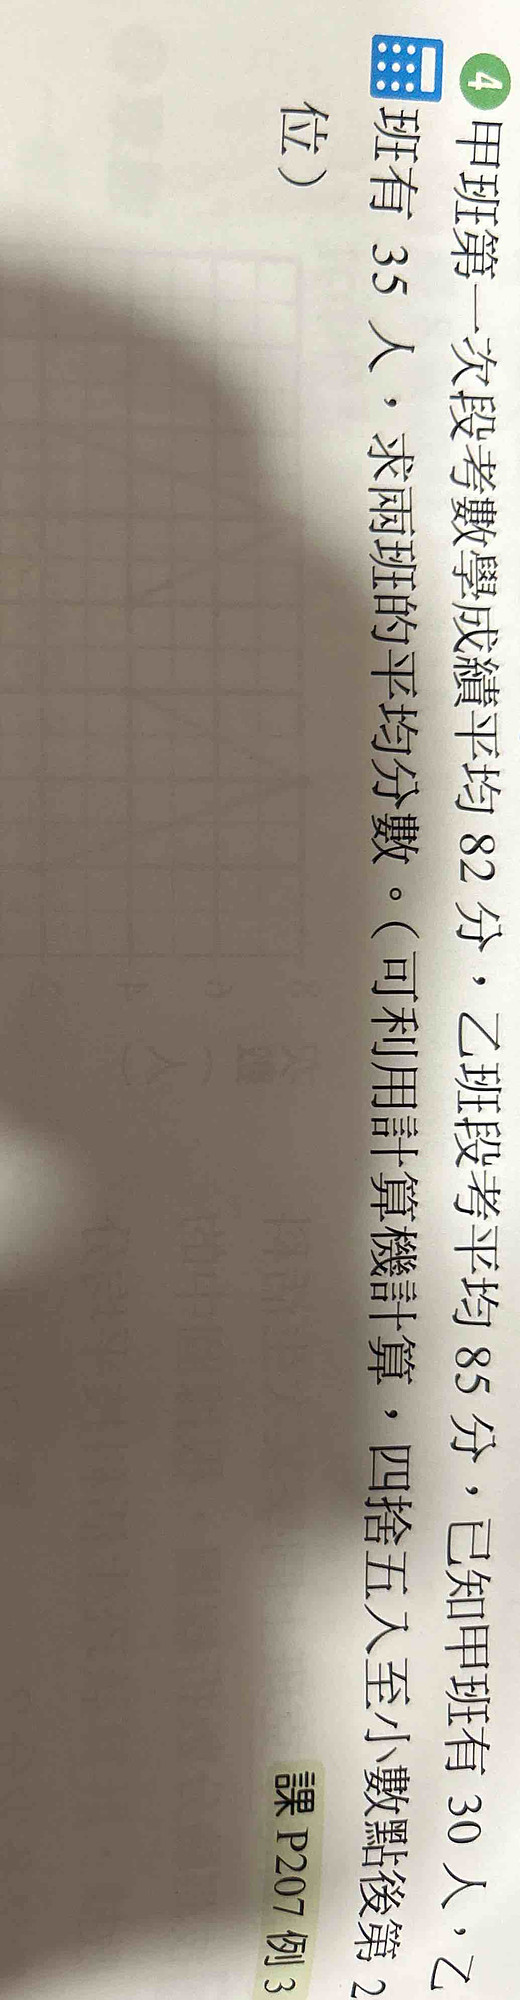 4 甲班第一次段考數學成績平均 82 分，乙班段考平均 85 分，已知甲班有 30 人，乙
班有 35 人，求兩班的平均分數。（可利用計算機計算，四捨五入至小數點後第 2
位）
課 P207 例 3